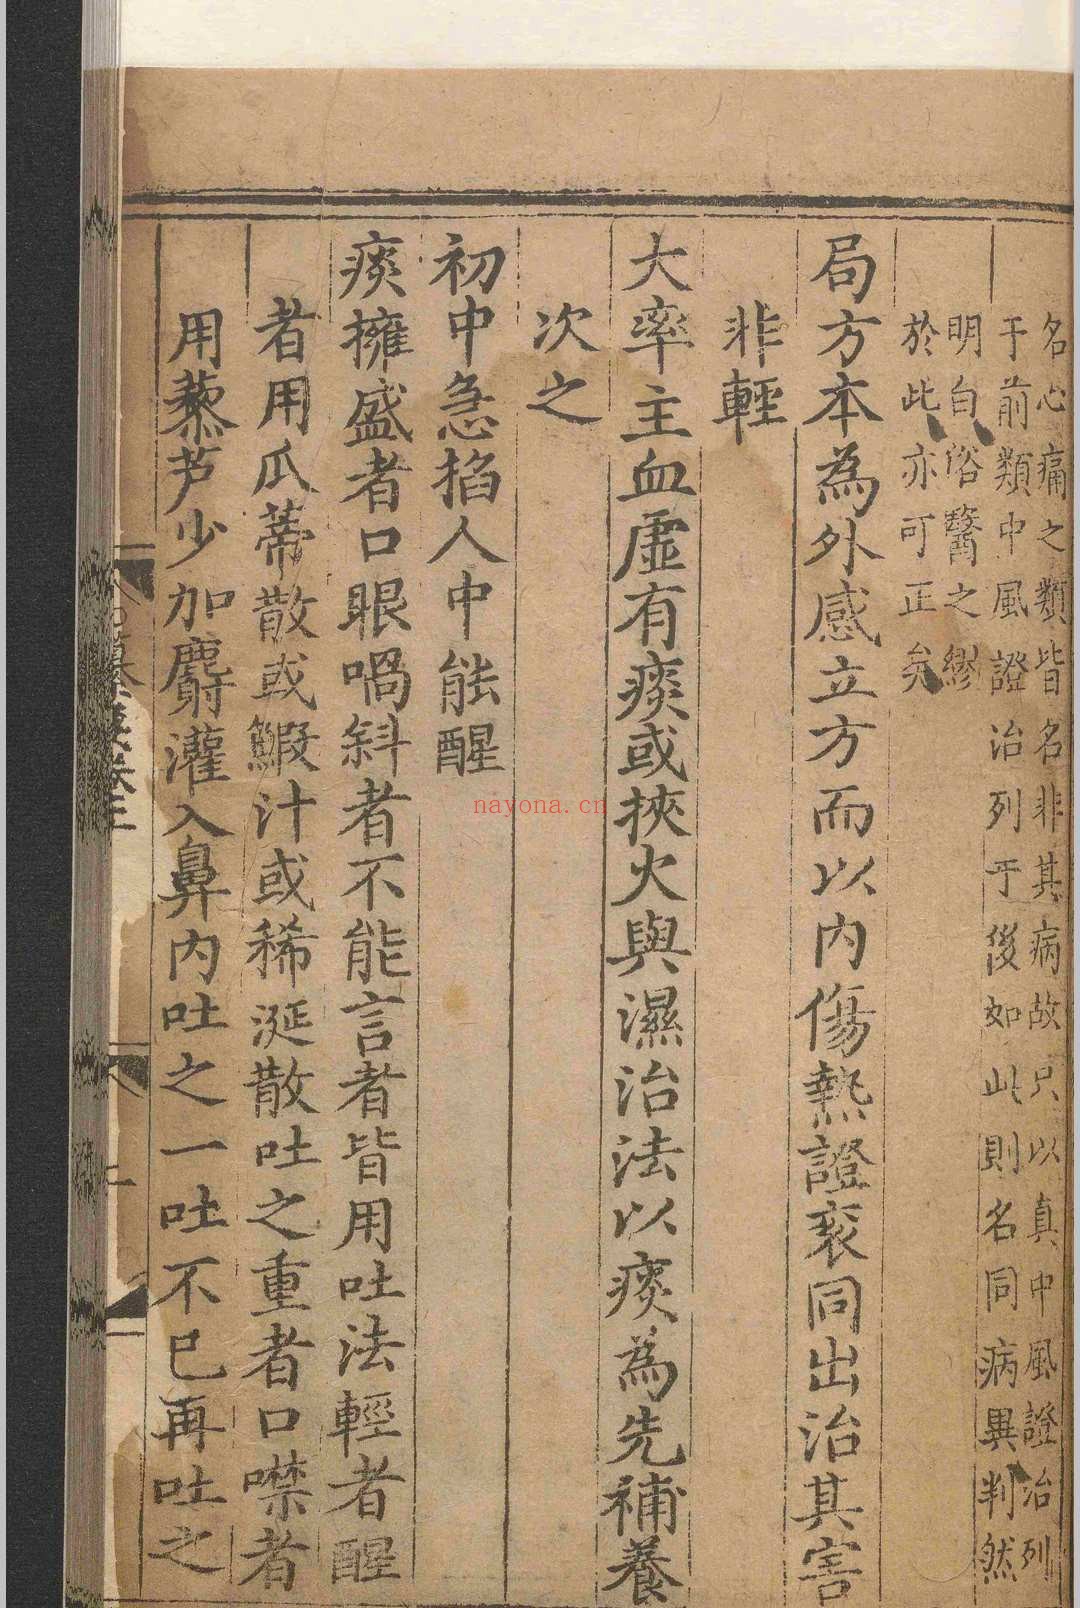 名心痛之類皆名非其病故只以真中風證治列
于前類中風證治列于後如此則名同病異判然
明白俗醫之繆
於此亦可正矣
局方本為外感立方而以內傷熱證衮同出治其害
非輕
大率主血虛有痰或挾火與濕治法以痰為先補養
次之
初中急掐人中能醒
痰擁盛者口眼喎斜者不能言者皆用吐法輕者醒
者用瓜蒂散或鰕汁或稀涎散吐之重者口噤者
用藜芦少加麝灌入鼻內吐之一吐不已再吐之
nayona.cn